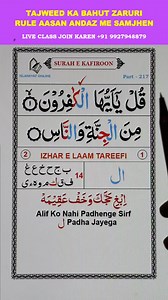 TAJWEED KA BAHUT ZARURI
RULE AASAN ANDAZ ME SAMJHEN
LIVE CLASS JOIN KAREN +91 9927948879
SURAH E KAFIROON
Part - 217
قُلْ يٰٓاَيُّهَا الْكٰفِرُوْنَ
مِنَ الْجِنَّةِ وَالنَّاسِ
2 IZHAR E LAAM TAREEFI 1
ا ب ج ح خ ع غ
ف ق ك م و ه ء ي
14
ال
اِبْغِ حَجَّكَ وَخَفْ عَقِيْمَهٗ
Alif Ko Nahi Padhenge Sirf
ل Padha Jayega